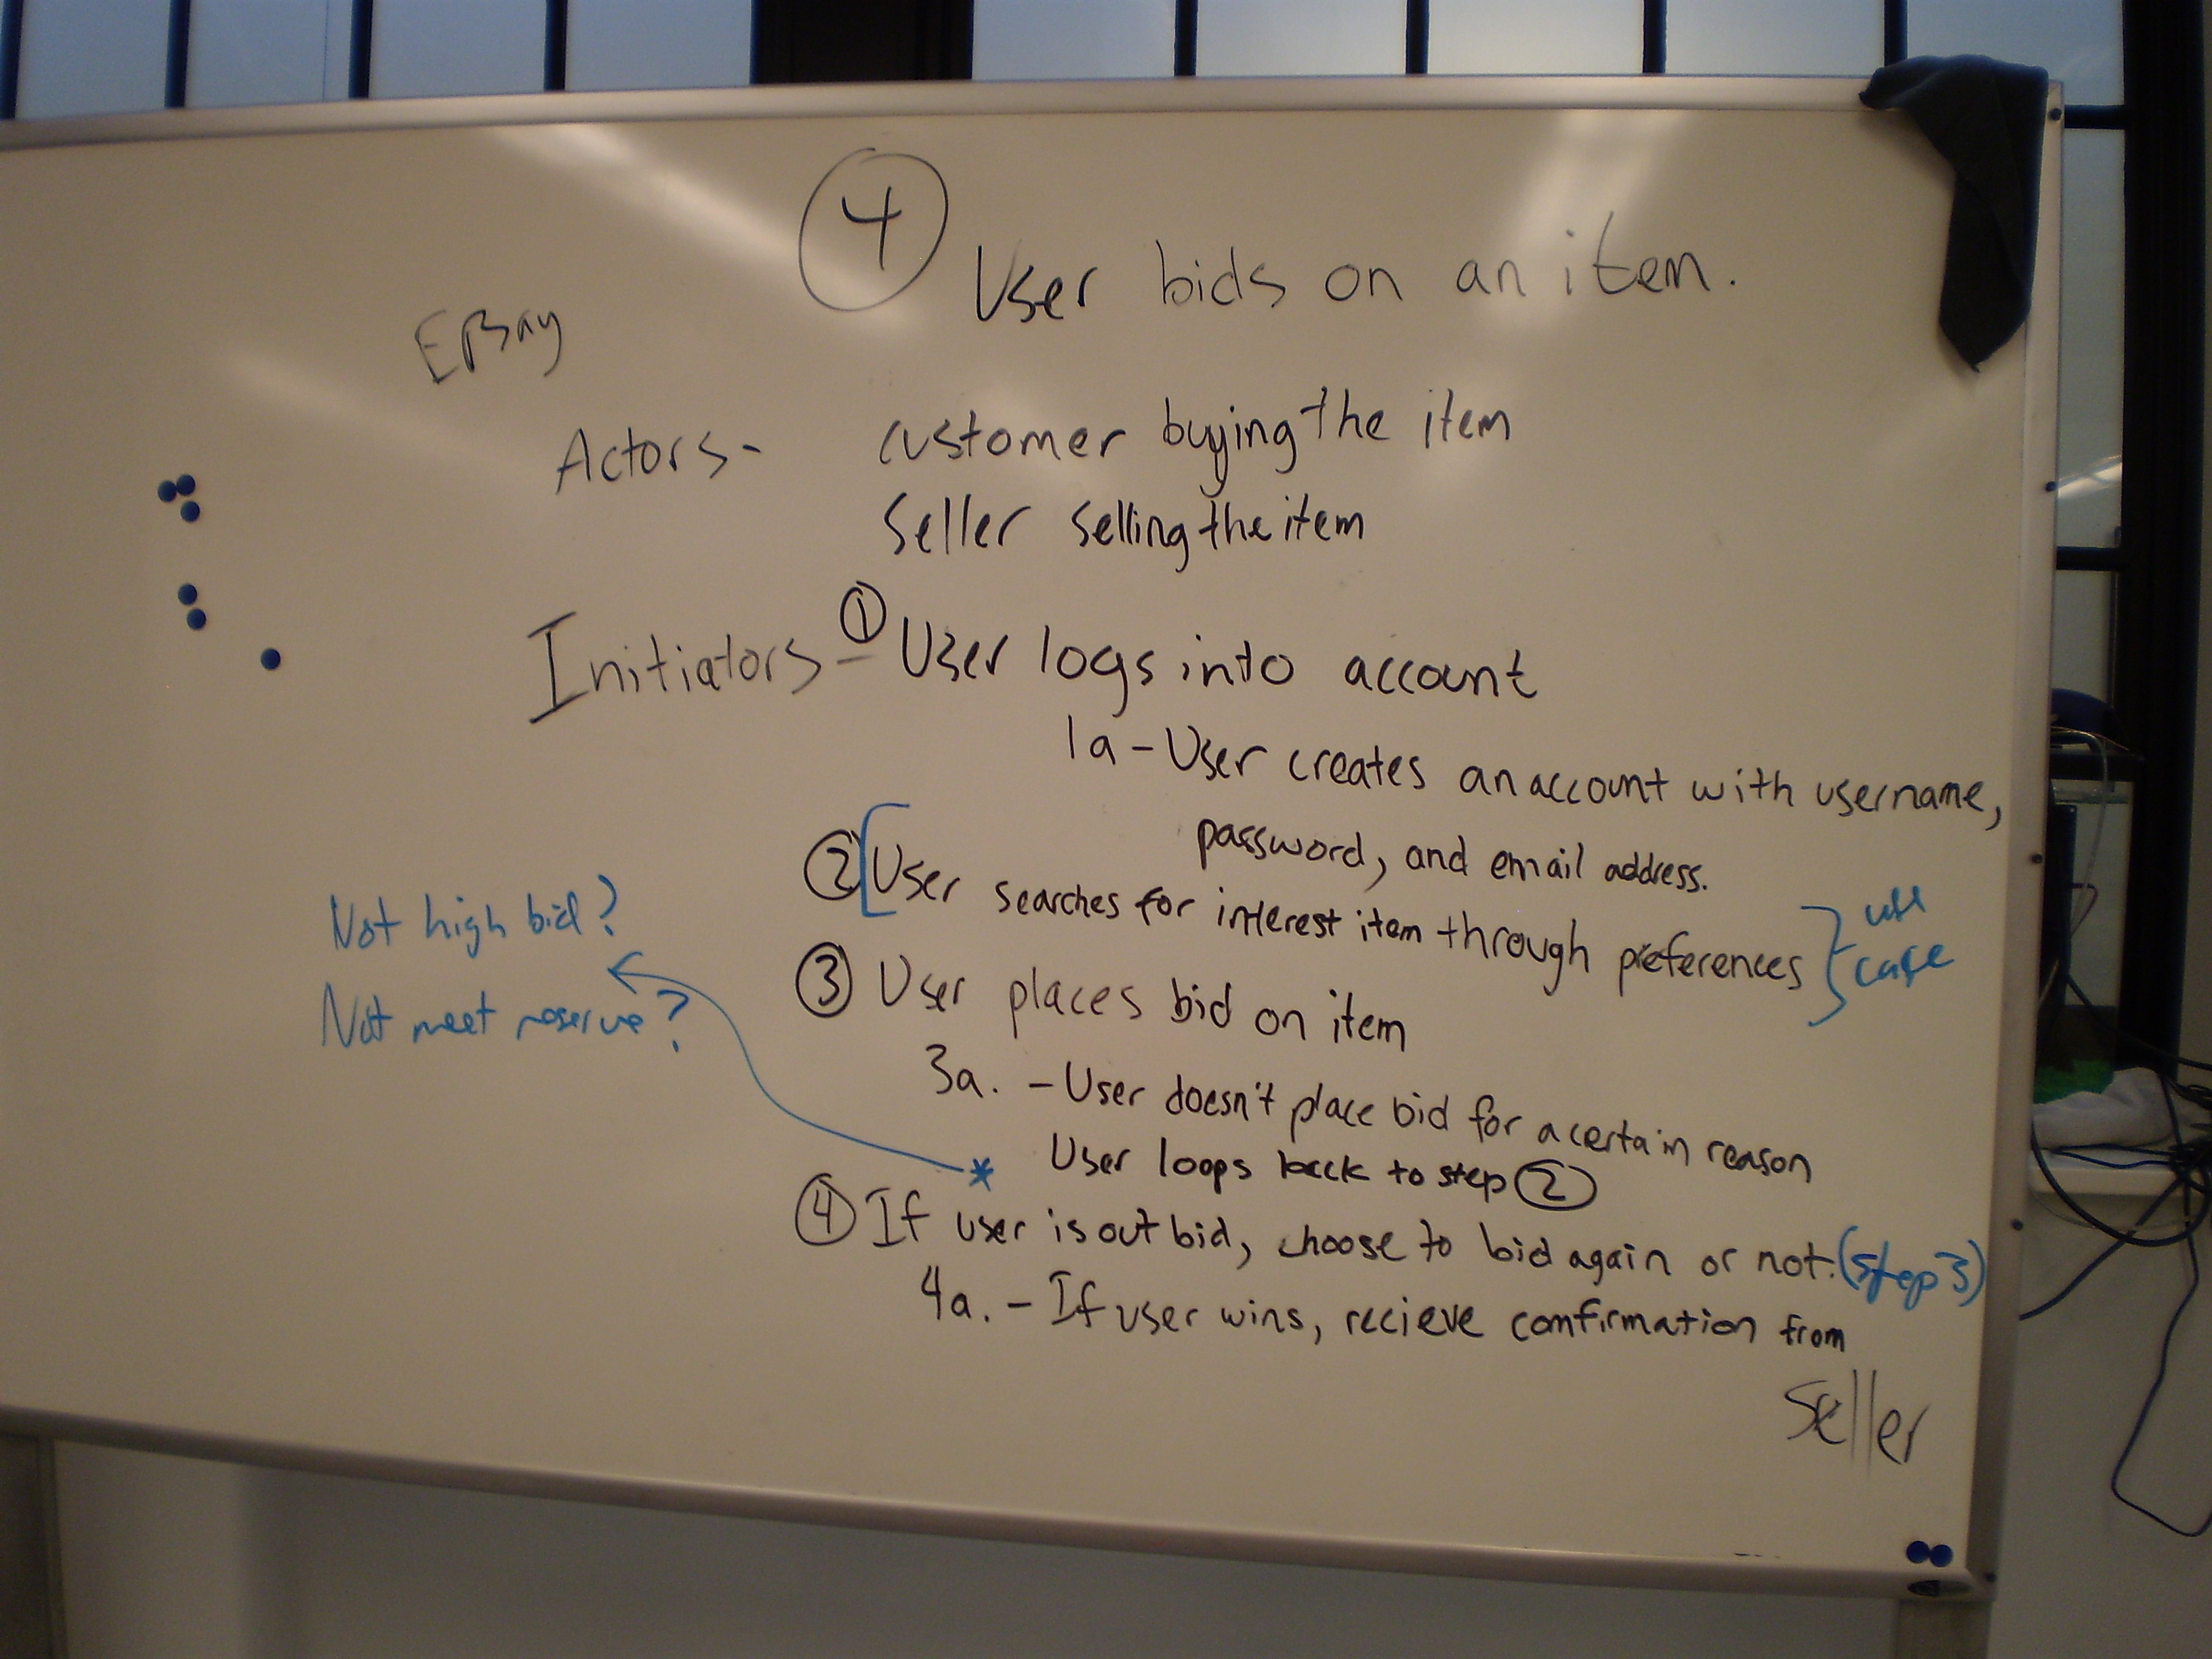 4
User bids on an item.
EBay
Actors - customer buying the item
Seller selling the item
Initiators - 1 User logs into account
1a - User creates an account with username,
password, and email address.
2 [User searches for interest item through preferences } use case
3 User places bid on item
3a. - User doesn't place bid for a certain reason
User loops back to step 2
*
Not high bid?
Not meet reserve?
4 If user is out bid, choose to bid again or not. (step 3)
4a. - If user wins, recieve confirmation from
Seller